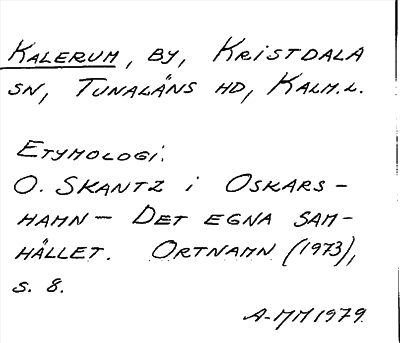 KALERUM, BY, KRISTDALA
SN, TUNALÄNS HD, KALM.L.
ETYMOLOGI:
O. SKANTZ i OSKARS-
HAMN - DET EGNA SAM-
HÄLLET. ORTNAMN (1973),
S. 8.
A-MM 1979.